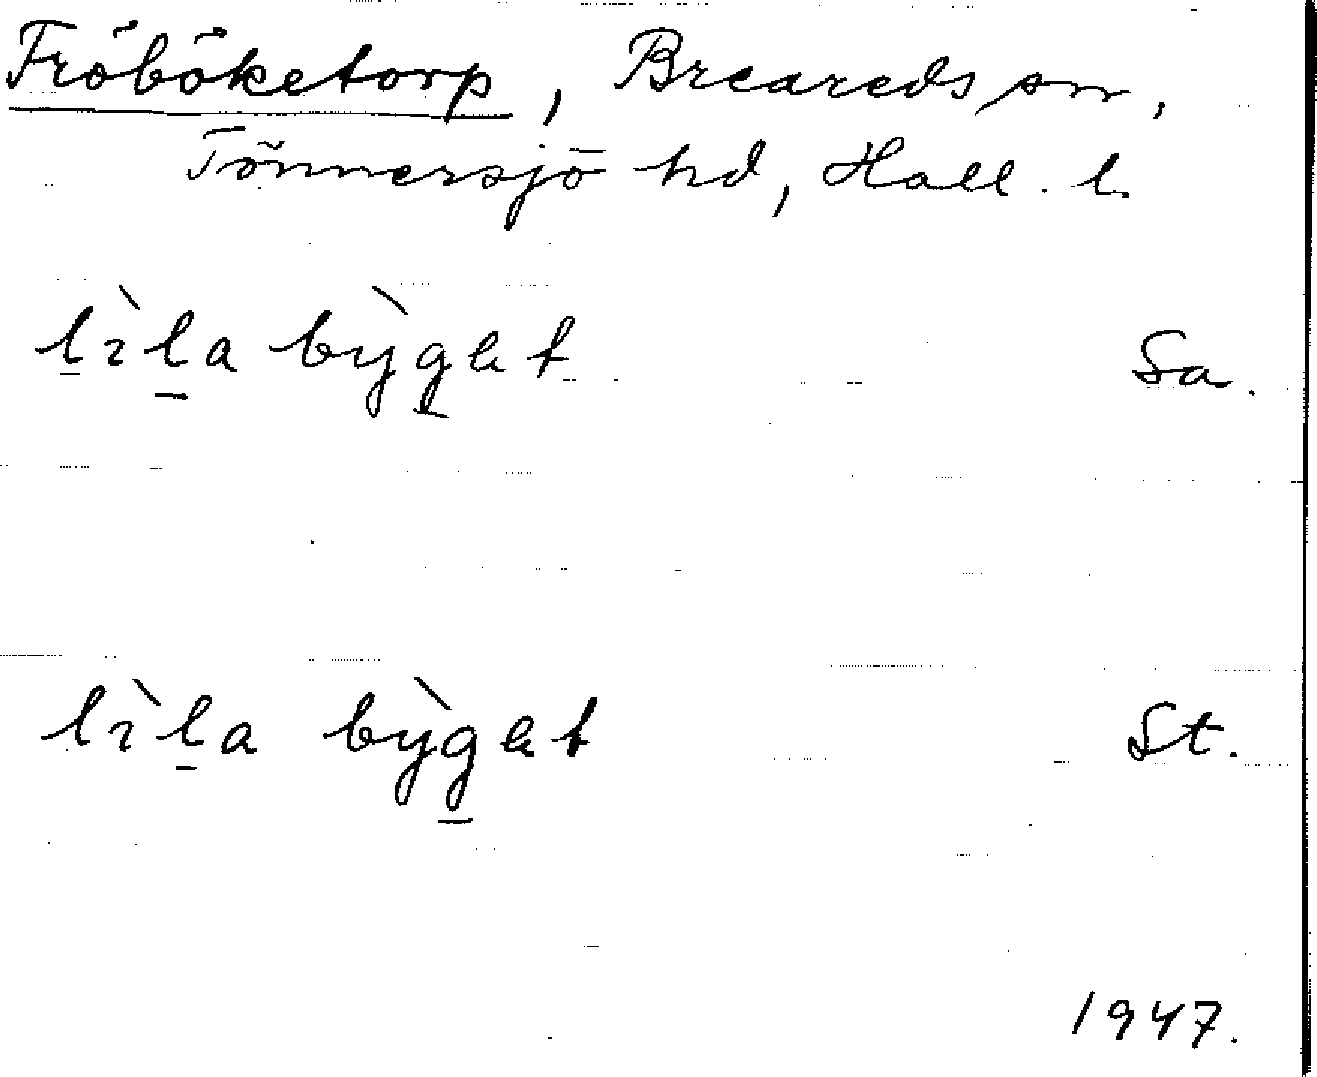 Fröböketorp, Breareds sn,
Tönnersjö hd, Hall. l.
lìla bỳgat Sa.
lìla bỳgat St.
1947.